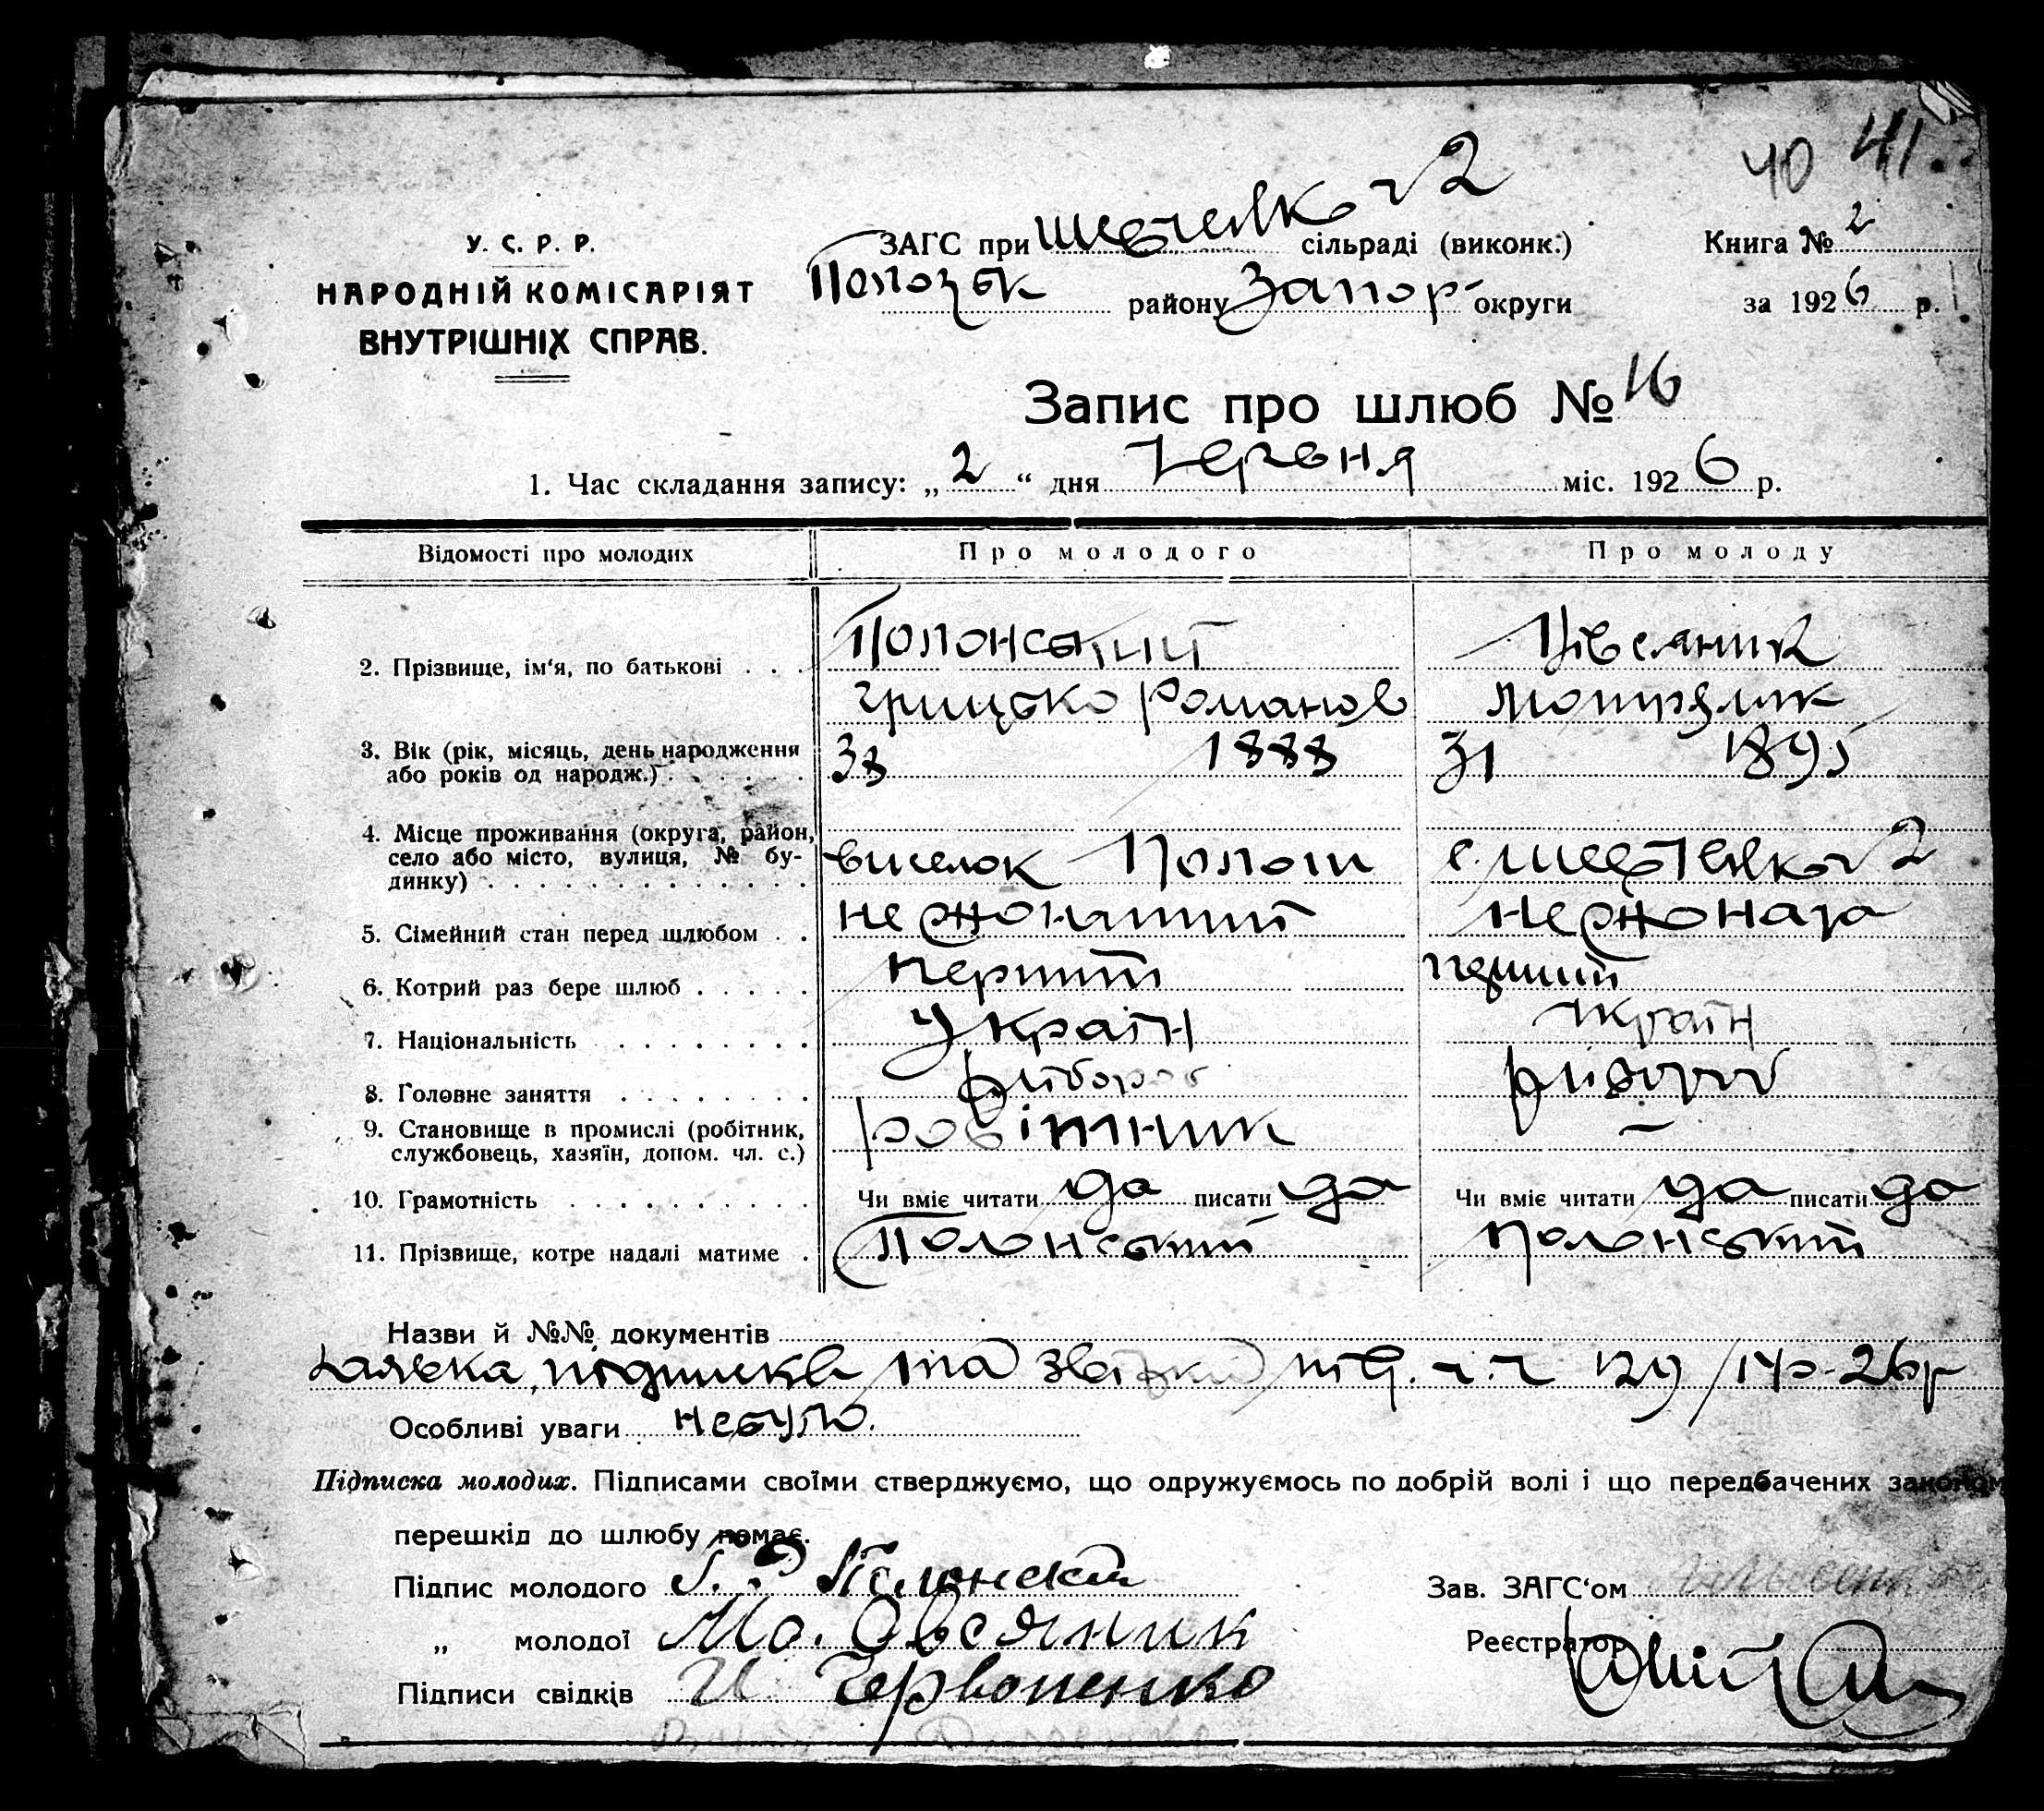 40 41
У. С. Р. Р.
НАРОДНІЙ КОМІСАРІЯТ
ВНУТРІШНІХ СПРАВ.
ЗАГС при 2 сільраді (виконк.)
району Запор округи
Книга № 2
за 1926 р.
Запис про шлюб № 16
1. Час складання запису: „2“ дня Червня міс. 1926 р.
Відомості про молодих Про молодого Про молоду
2. Прізвище, ім'я, по батькові . . . Полонський
Грицько Романов
3. Вік (рік, місяць, день народження
або років од народж.) . . . . . . 38 1888 31 1895
4. Місце проживання (округа, район,
село або місто, вулиця, № бу-
динку) . . . . . . . . . . . . . виселок Пологи с. 2
5. Сімейний стан перед шлюбом . . нежонатий нежоната
6. Котрий раз бере шлюб . . . . . перший перший
7. Національність . . . . . . . . Україн Україн
8. Головне заняття . . . . . . . .
9. Становище в промислі (робітник,
службовець, хазяїн, допом. чл. с.) робітник —
10. Грамотність . . . . . . . . . . Чи вміє читати да писати да Чи вміє читати да писати да
11. Прізвище, котре надалі матиме . Полонський Полонський
Назви й №№ документів
Заявка, підписка та 129/14р-26р
Особливі уваги небуло.
Підписка молодих. Підписами своїми стверджуємо, що одружуємось по добрій волі і що передбачених законом
перешкід до шлюбу немає.
Підпис молодого Г. Р. Полонский
„ молодої Мо. Овсяник
Підписи свідків И. Червоненко
Зав. ЗАГС'ом
Реєстратор